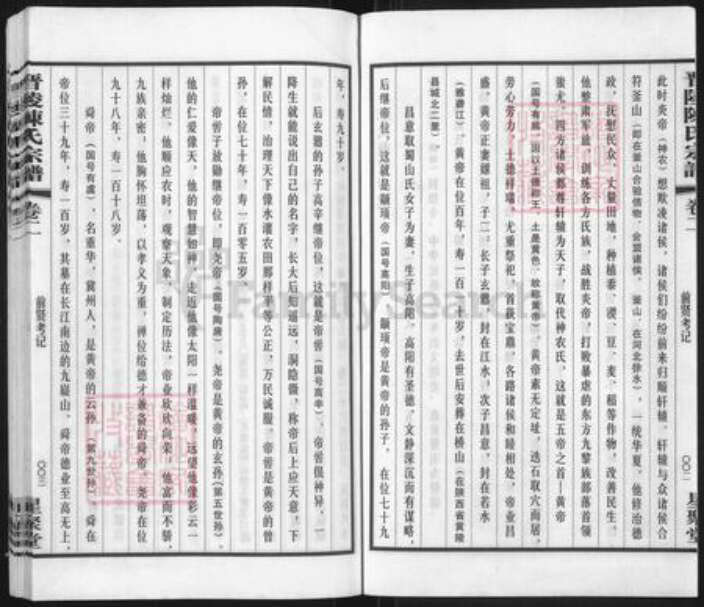 晋陵陈氏宗谱 卷二 前贤考记 〇〇二 星聚堂
此时炎帝（神农）想欺凌诸侯，诸侯们纷纷前来归顺轩辕，轩辕与众诸侯合
符釜山（即在釜山合验信物，会盟诸侯。釜山，在河北徐水），一统华夏。他修治德
政，抚慰民众，丈量田地，种植黍、稷、豆、麦、稻等作物，改善民生。
他整肃军旅，训练各方氏族，战胜炎帝，打败暴虐的东方九黎族部落首领
蚩尤。四方诸侯都尊轩辕为天子，取代神农氏，这就是五帝之首—黄帝
（国号有熊，因以土德称王，土是黄色，故称黄帝）。黄帝素无定址，迭石取穴而居，
劳心劳力，土德祥瑞，尤重祭祀，首获宝鼎，各路诸侯和睦相处，帝业昌
盛。黄帝正妻嫘祖，子二，长子玄嚣，封在江水，次子昌意，封在若水
（雅砻江）。黄帝在位百年，寿一百二十岁，去世后安葬在桥山（在陕西省黄陵
县城北二里）。
昌意取蜀山氏女子为妻，生子高阳，高阳有圣德，文静深沉而有谋略，
后继帝位，这就是颛顼帝（国号高阳）。颛顼帝是黄帝的孙子，在位七十九
年，寿九十岁。
后玄嚣的孙子高辛继帝位，这就是帝喾（国号高辛）。帝喾很神异，一
降生就能说出自己的名字，长大后知遥远，洞隐微，称帝后上应天意，下
解民情，治理天下像水灌农田那样平等公正，万民诚服。帝喾是黄帝的曾
孙，在位七十年，寿一百零五岁。
帝喾子放勋继帝位，即尧帝（国号陶唐）。尧帝是黄帝的玄孙（第五世孙）。
他的仁爱像天，他的智慧如神，走近他像太阳一样温暖，远望他像彩云一
样灿烂。他顺应农时，观察天象，制定历法，帝业欣欣向荣。他富而不骄，
九族亲密。他胸怀坦荡，以孝义为重，禅位给德才兼备的舜帝。尧帝在位
九十八年，寿一百十八岁。
舜帝（国号有虞），名重华，冀州人，是黄帝的云孙（第九世孙）。舜在
帝位三十九年，寿一百岁，其墓在长江南边的九嶷山。舜帝德业至高无上，
晋陵陈氏宗谱 卷二 前贤考记 〇〇三 星聚堂
FamilySearch